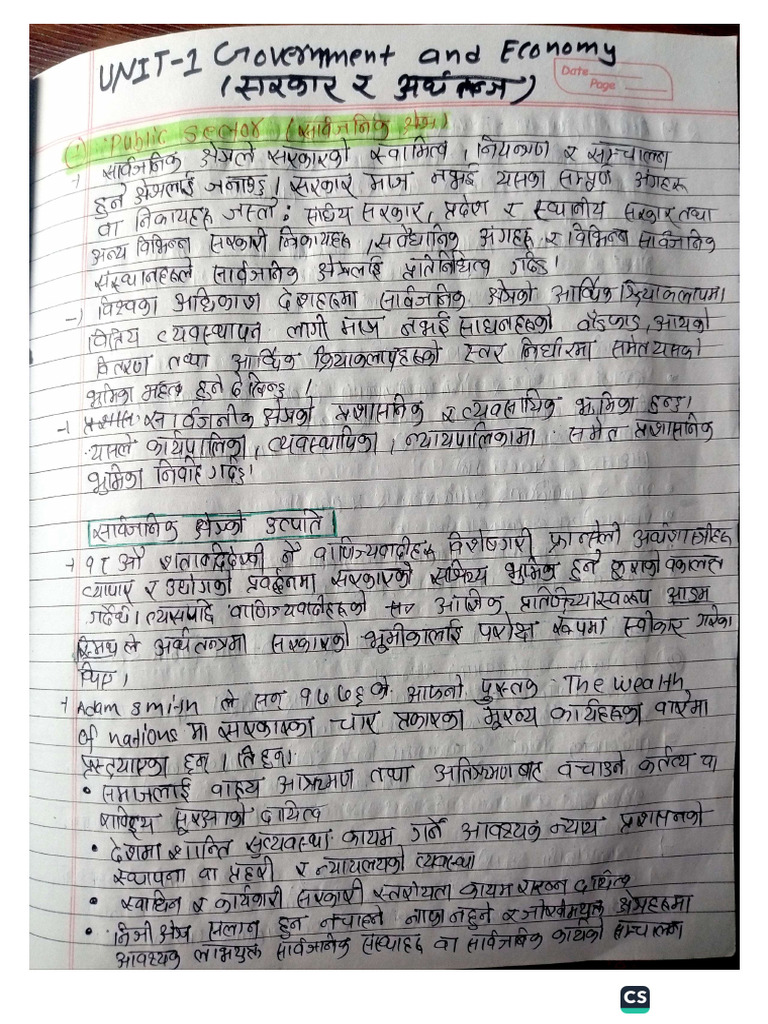 UNIT-1 Government and Economy
(सरकार र अर्थतन्त्र)
Date
Page
(i) Public sector (सार्वजनिक क्षेत्र)
→ सार्वजनिक क्षेत्रले सरकारको स्वामित्व, नियन्त्रण र सञ्चालन
हुने क्षेत्रलाई जनाउछ। सरकार मात्र नभई यसका सम्पूर्ण अंगहरू
वा निकायहरू जस्तो: संघीय सरकार, प्रदेश र स्थानीय सरकार तथा
अन्य विभिन्न सरकारी निकायहरू, सवैधानिक अंगहरू र विभिन्न सार्वजनिक
संस्थानहरूले सार्वजनिक क्षेत्रलाई प्रतिनिधित्व गर्दछ।
→ विश्वका अधिकांश देशहरूमा सार्वजनिक क्षेत्रको आर्थिक क्रियाकलापमा
वित्तिय व्यवस्थापन लागी मात्र नभई साधनहरूको बाँडफाड, आयको
वितरण तथा आर्थिक क्रियाकलापहरूको स्तर निर्धारमा समेत यसको
भूमिका महत्व हुने देखिन्छ।
→ सार्वजनीक क्षेत्रको प्रशासनिक र व्यवसायिक भूमिका हुन्छ।
यसले कार्यपालिका, व्यवस्थापिका, न्यायपालिकामा समेत प्रशासनिक
भूमिका निर्वाह गर्दछ।
सार्वजनिक क्षेत्रको उत्पति
→ १८ औ शताब्दिदेखी नै वाणिज्यवादीहरू विशेषगरी फ्रान्सेली अर्थशास्त्रीहरू
व्यापार र उद्योगको प्रवर्द्धनमा सरकारको सक्रिय भूमिका हुने कुराको वकालत
गर्दथे। त्यसपछि वाणिज्यवादीहरूको आंशिक प्रतिक्रियास्वरूप आडम
स्मिथ ले अर्थतन्त्रमा सरकारको भूमीकालाई परोक्ष रूपमा स्वीकार गरेका
थिए।
→ Adam smith ले सन १७७६ को आफ्नो पुस्तक The wealth
of nations मा सरकारका चार प्रकारका मूख्य कार्यहरूका बारेमा
हुन्। ति हुन्।
• समाजलाई वाह्य आक्रमण तथा अतिक्रमणबाट बचाउने कर्तव्य वा
राष्ट्रिय सुरक्षाको दायित्व
• देशमा शान्ति सुव्यवस्था कायम गर्न आवश्यक न्याय प्रशासनको
स्थापना वा प्रहरी र न्यायलयको व्यवस्था
• स्वाधिन र कार्यकारी सरकारी कायम राख्न दायित्व
• निजी क्षेत्र हुन नचाहने नाफा नहुने र जोखिमयुक्त क्षेत्रहरूमा
आवश्यक लाभयुक्त सार्वजनिक सस्थाहरू वा सार्वजनिक कार्यको सञ्चालन
CS